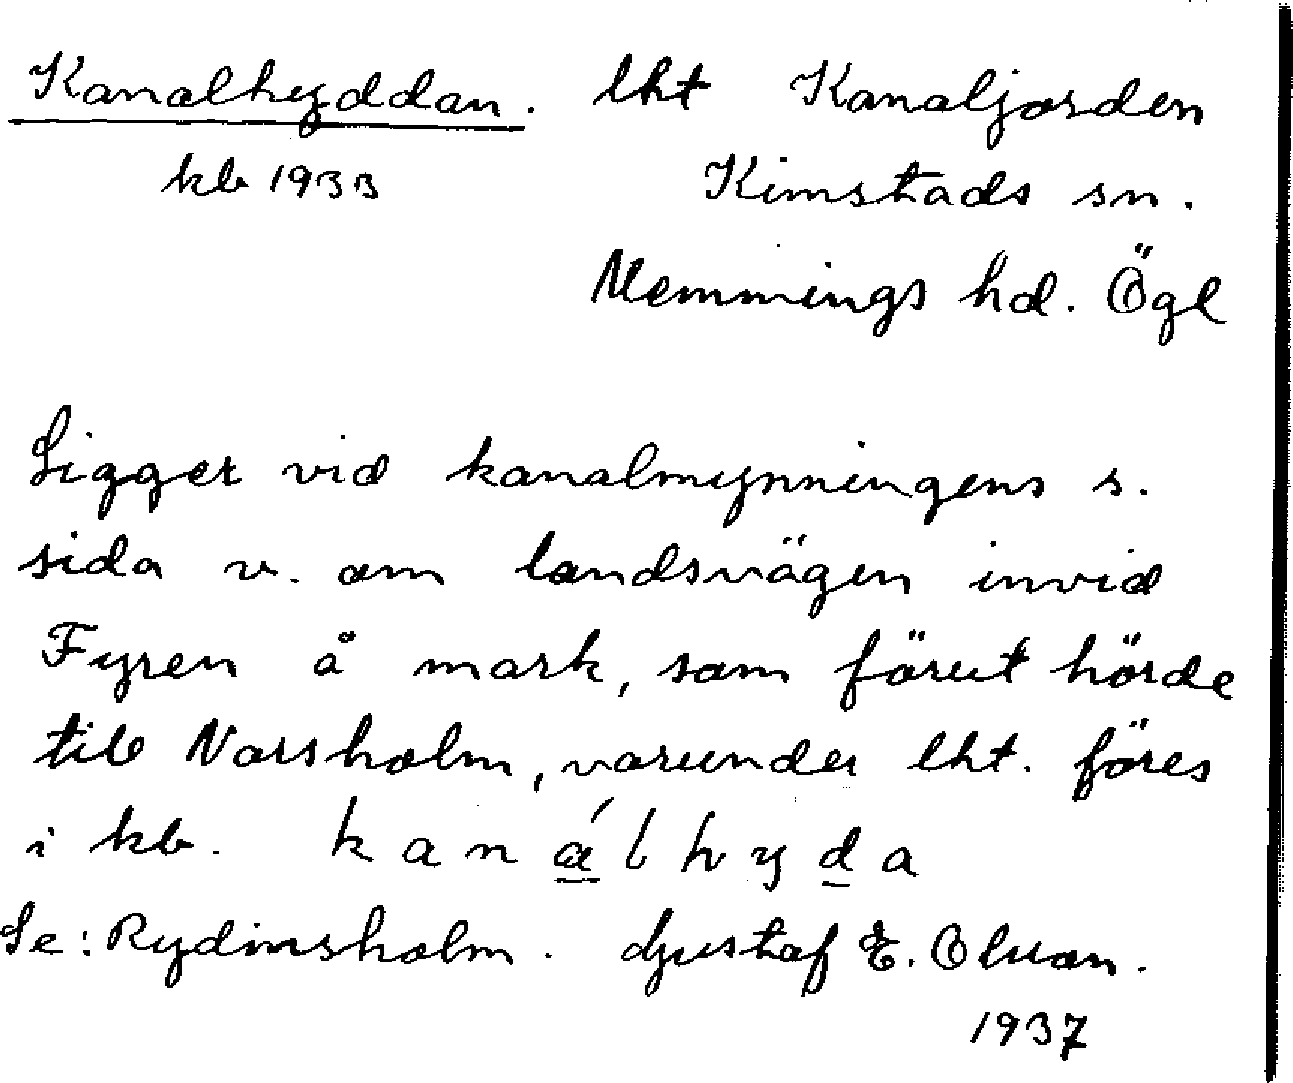 Kanalhyddan. lht Kanaljorden
kb 1933 Kimstads sn.
Memmings hd. Ögl
Ligger vid kanalmynningens s.
sida v. om landsvägen invid
Fyren å mark, som förut hörde
till Norsholm, varunder lht. föres
i kb. kanálhyda
Se: Rydinsholm. Gustaf E.
1937